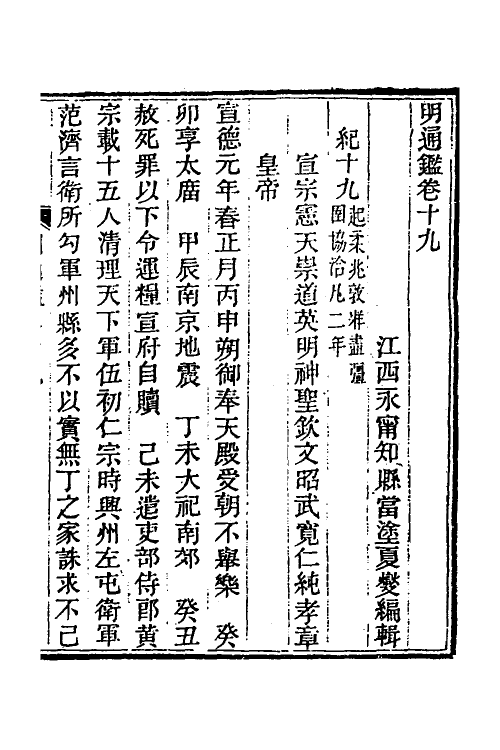 明通鑑卷十九
江西永甯知縣當塗夏燮編輯
紀十九起柔兆敦牂盡彊
圉協洽凡二年
宣宗憲天崇道英明神聖欽文昭武寬仁純孝章
皇帝
宣德元年春正月丙申朔御奉天殿受朝不舉樂 癸
卯享太廟 甲辰南京地震 丁未大祀南郊 癸丑
赦死罪以下令運糧宣府自贖 己未遣吏部侍郎黃
宗載十五人清理天下軍伍初仁宗時興州左屯衛軍
范濟言衛所勾軍州縣多不以實無丁之家誅求不已